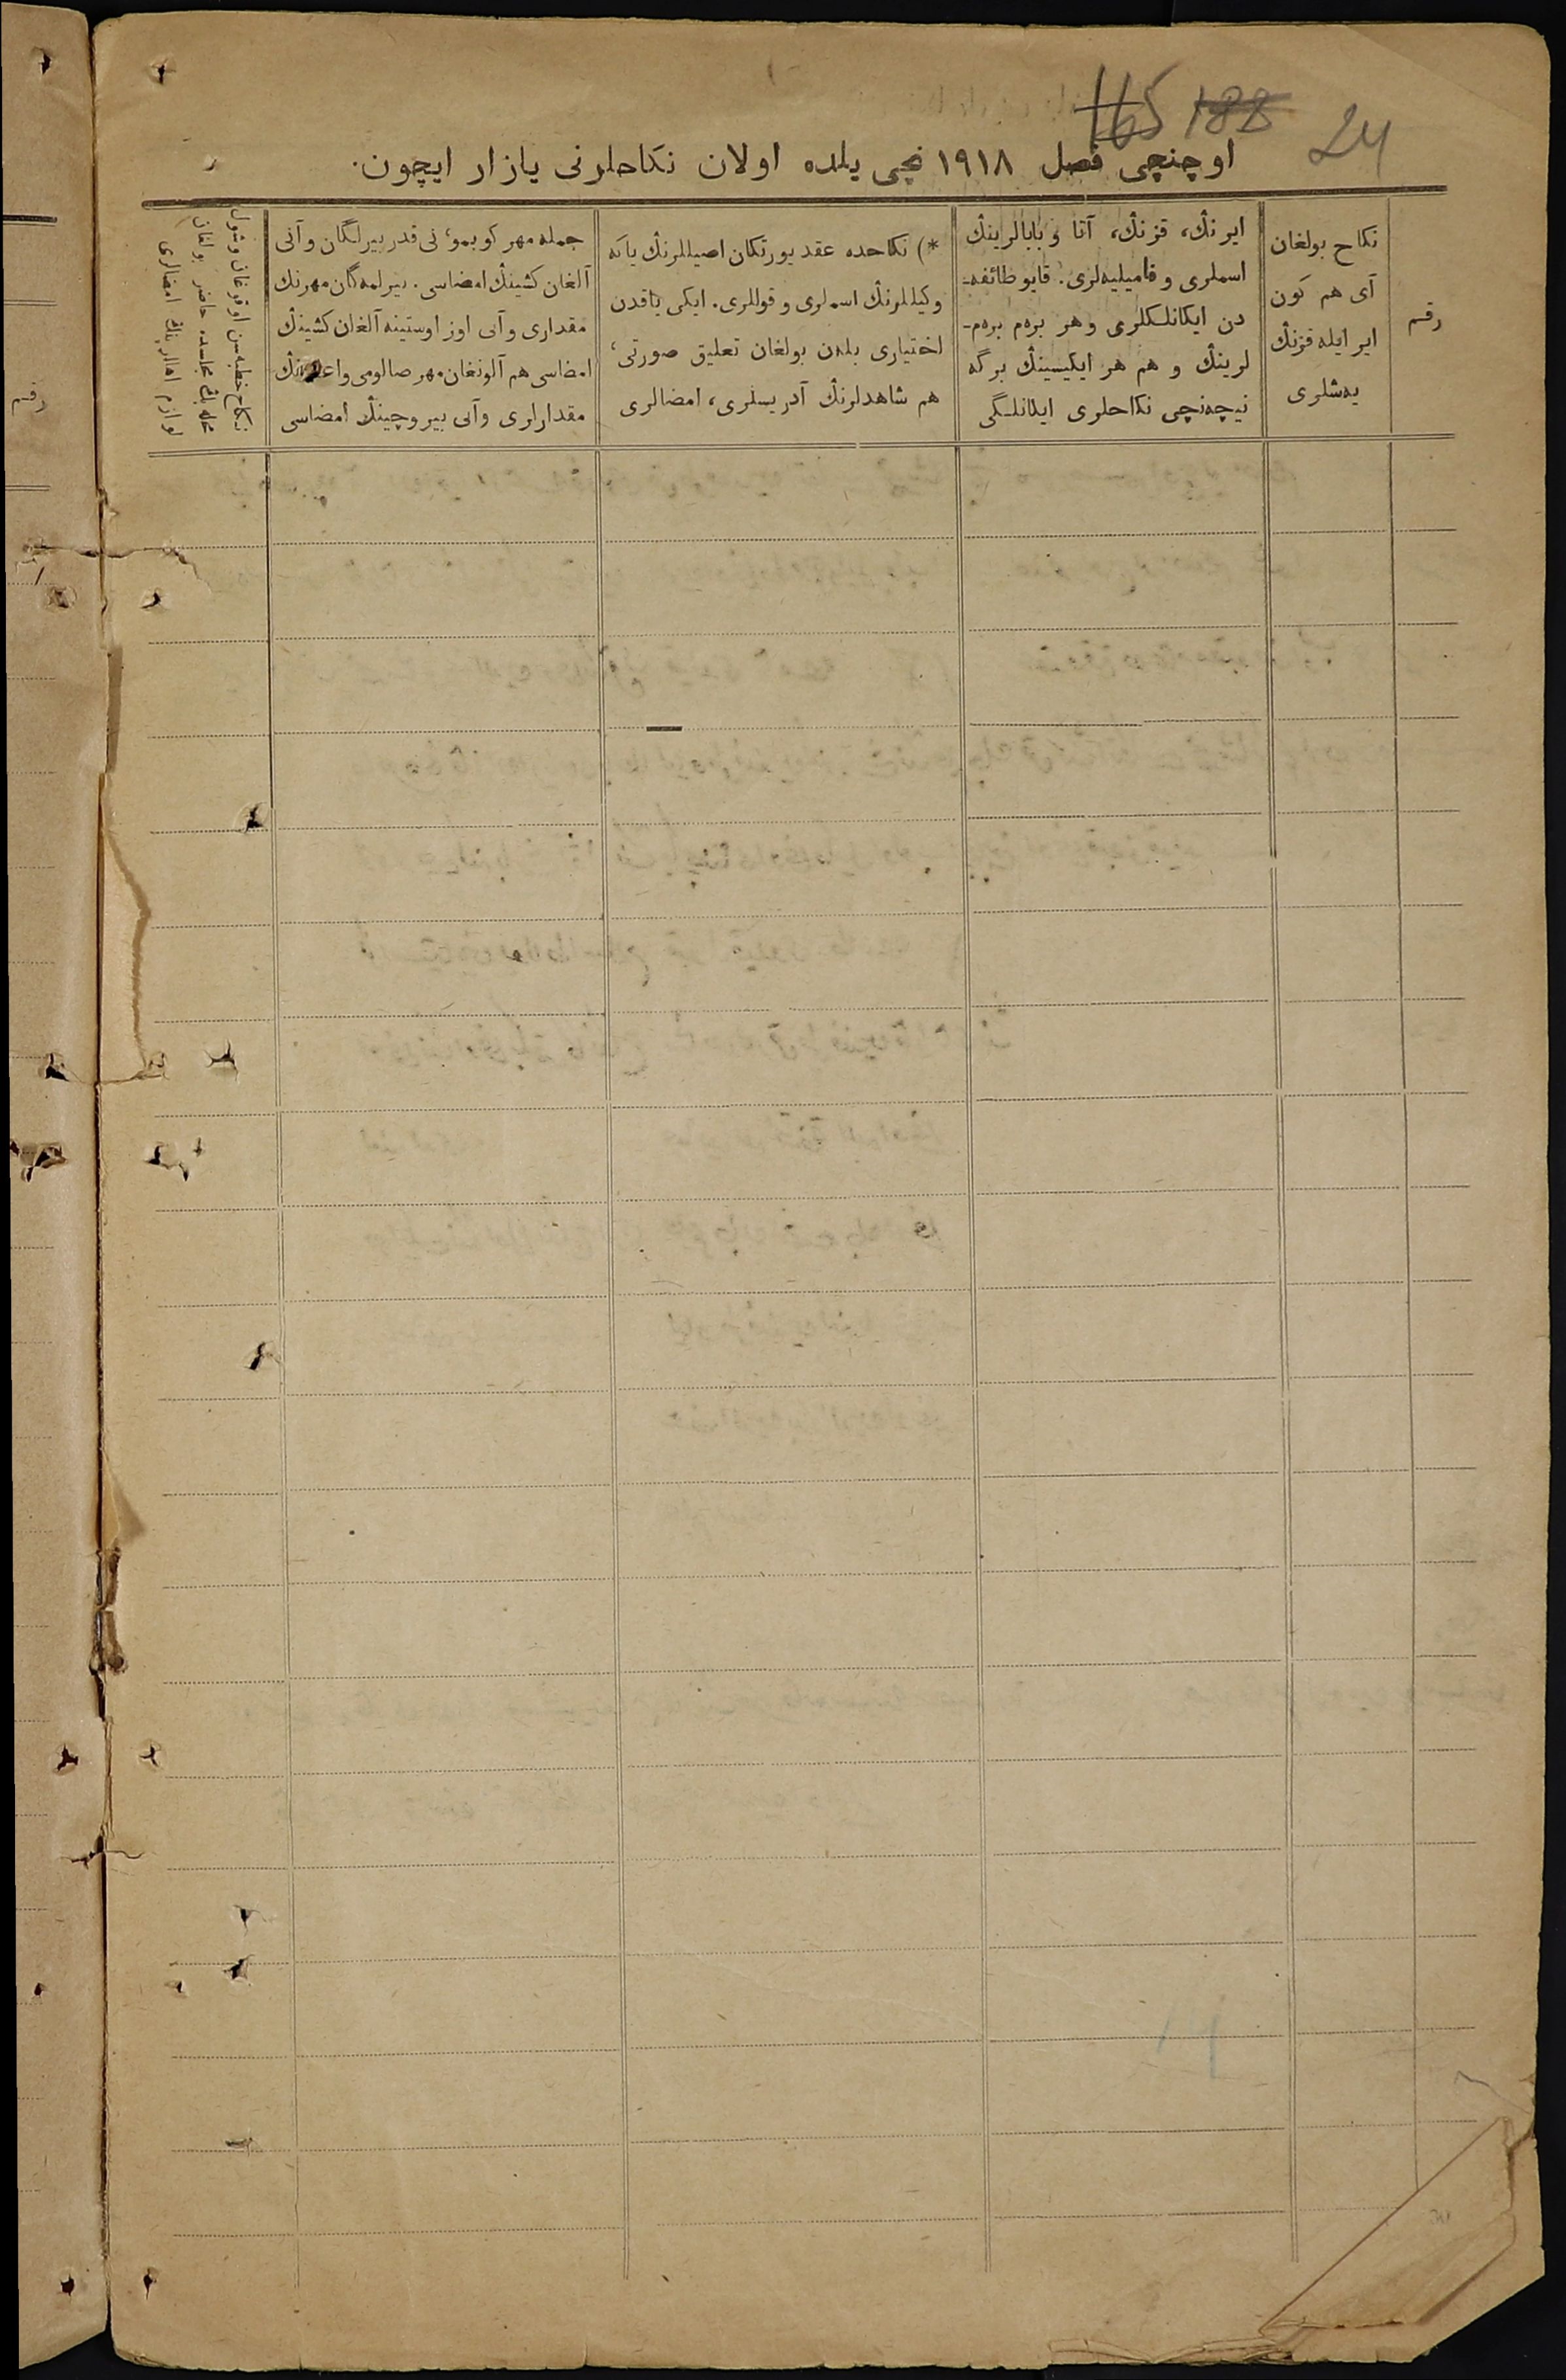 165 188 24
اوچنچی فصل ۱۹۱۸ نچی یلده اولان نکاحلرنی یازار ایچون.
رقم
نکاح بولغان
آی هم کون
ایر ایله قزنڭ
یه‌شلری
ایرنڭ، قزنڭ، آتا و بابالرینڭ
اسملری و فامیلیه‌لری. قایو طائفه-
دن ایکانلکلری و هر بره‌م بره‌م-
لرینڭ و هم هر ایکیسینڭ برگه
نیچه‌نچی نکاحلری ایکانلگی
*) نکاحده عقد یورتکان اصیللرنڭ یاکه
وکیللرنڭ اسملری و قوللری. ایکی یاقدن
اختیاری بلەن بولغان تعلیق صورتی،
هم شاهدلرنڭ آدریسلری، امضالری
جمله مهر کوبمو، نی قدر بیرلگان و آنی
آلغان کشینڭ امضاسی. بیرلمه‌گان مهرنڭ
مقداری و آنی اوز اوستینه آلغان کشینڭ
امضاسی هم آلونغان مهر صالومی و
مقدارلری و آنی بیروچینڭ امضاسی
نکاح خطبه‌سن اوقوغان و شول
محله‌نڭ مجلسده حاضر بولغان
لوازم امضالری
رقم